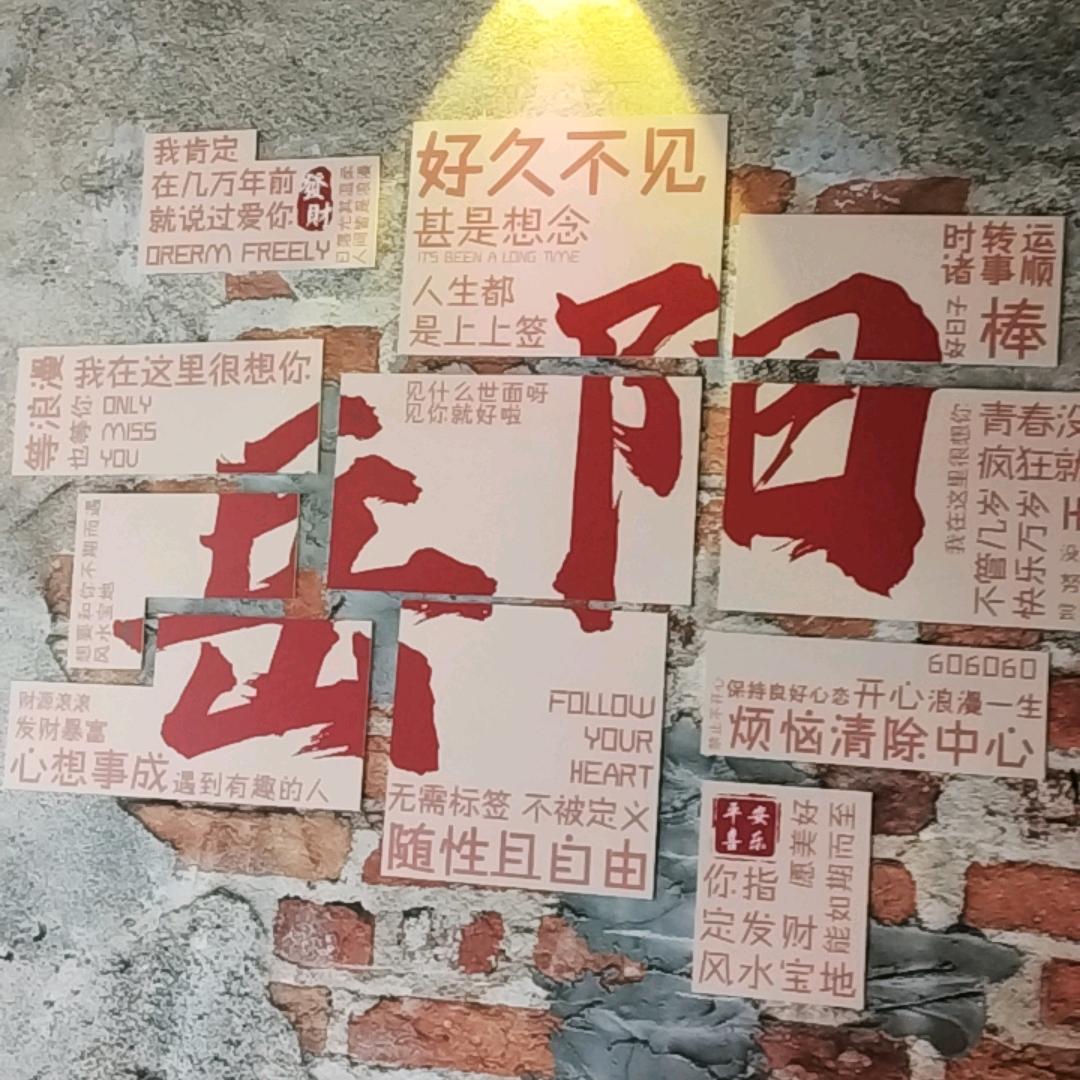 我肯定
在几万年前
就说过爱你
發財
DRERM FREELY
人间皆是浪漫
好久不见
甚是想念
IT'S BEEN A LONG TIME
人生都
是上上签
时转运
诸事顺
好日子
棒
岳阳
等浪漫
我在这里很想你
也等你
ONLY
MISS
YOU
见什么世面呀
见你就好啦
我在这里很想你
青春没
疯狂就
不管几岁
快乐万岁
想要和你不期而遇
风水宝地
财源滚滚
发财暴富
心想事成
遇到有趣的人
FOLLOW
YOUR
HEART
无需标签 不被定义
随性且自由
606060
禁止不开心
保持良好心恋
开心浪漫一生
烦恼清除中心
平安
喜乐
愿美好
能如期而至
你指
定发财
风水宝地